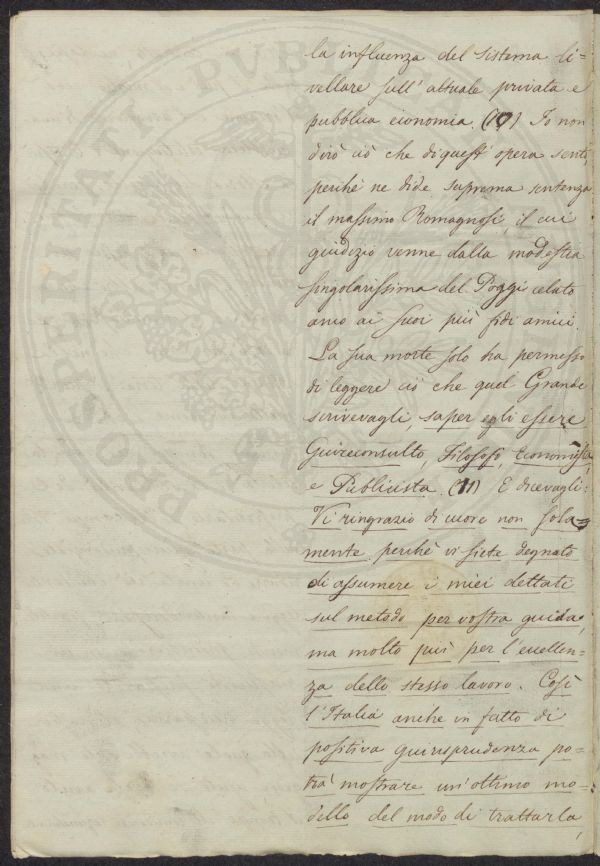 la influenza del sistema li=
vellare sull' attuale privata e
pubblica economia. (10) Io non
dirò ciò che di quest' opera senti,
perchè ne dide suprema sentenza
il massimo Romagnosi, il cui
giudizio venne dalla modestia
singolarissima del Poggi celato
anco ai suoi più fidi amici.
La sua morte solo ha permesso
di leggere ciò che quel Grande
scrivevagli, saper egli essere
Giureconsulto, Filosofo, Economista,
e Publicista. (11) E dicevagli:
Vi ringrazio di cuore non sola=
mente perchè vi siete degnato
di assumere i miei dettati
sul metodo per vostra guida,
ma molto più per l'eccellen=
za dello stesso lavoro. Così
l'Italia anche in fatto di
positiva giurisprudenza po=
trà mostrare un'ottimo mo=
dello del modo di trattarla,
PROSPERITATI PUBLICAE